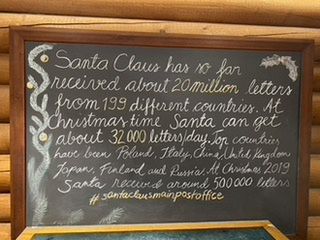 Santa Claus has so far
received about 20 million letters
from 199 different countries. At
Christmas time Santa can get
about 32 000 letters/day. Top countries
have been Poland, Italy, China, United Kingdom
Japan, Finland and Russia. At Christmas 2019
Santa received around 500 000 letters
#santaclausmainpostoffice